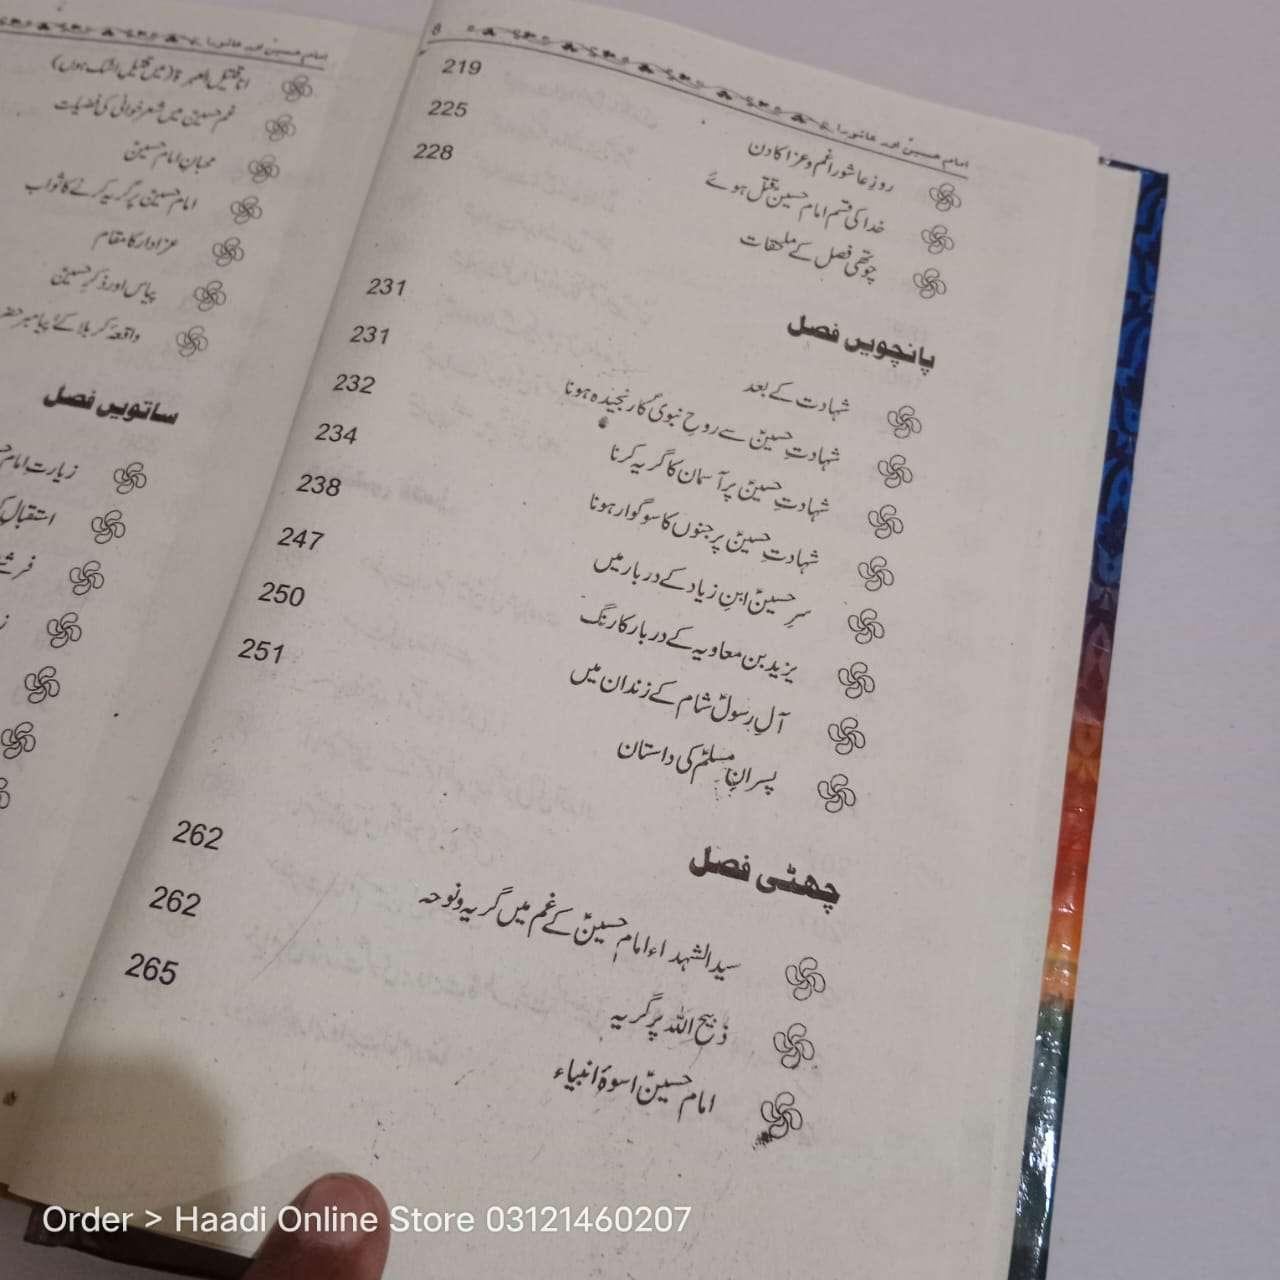 8
امام حسینؑ اور عاشورا
روزِ عاشور، غم و عزا کا دن 219
خدا کی قسم امام حسینؑ قتل ہوئے 225
چوتھی فصل کے ملحقات 228
پانچویں فصل
شہادت کے بعد 231
شہادتِ حسینؑ سے روحِ نبویؐ کا رنجیدہ ہونا 231
شہادتِ حسینؑ پر آسمان کا گریہ کرنا 232
شہادتِ حسینؑ پر جنوں کا سوگوار ہونا 234
سرِ حسینؑ ابنِ زیاد کے دربار میں 238
یزید بن معاویہ کے دربار کا رنگ 247
آلِ رسولؐ شام کے زندان میں 250
پسرانِ مسلمؑ کی داستان 251
چھٹی فصل
سید الشہداء امام حسینؑ کے غم میں گریہ و نوحہ 262
ذبیح اللہ پر گریہ 262
امام حسینؑ اسوۂ انبیاء 265
امام حسینؑ اور عاشورا
(میں قتیلِ اشک ہوں)
غمِ حسینؑ میں شعر خوانی کی فضیلت
محبانِ امام حسینؑ
امام حسینؑ پر گریہ کرنے کا ثواب
عزادار کا مقام
پیاس اور ذکرِ حسینؑ
واقعۂ کربلا کے پیامبر
ساتویں فصل
زیارت امام
استقبال
Order > Haadi Online Store 03121460207